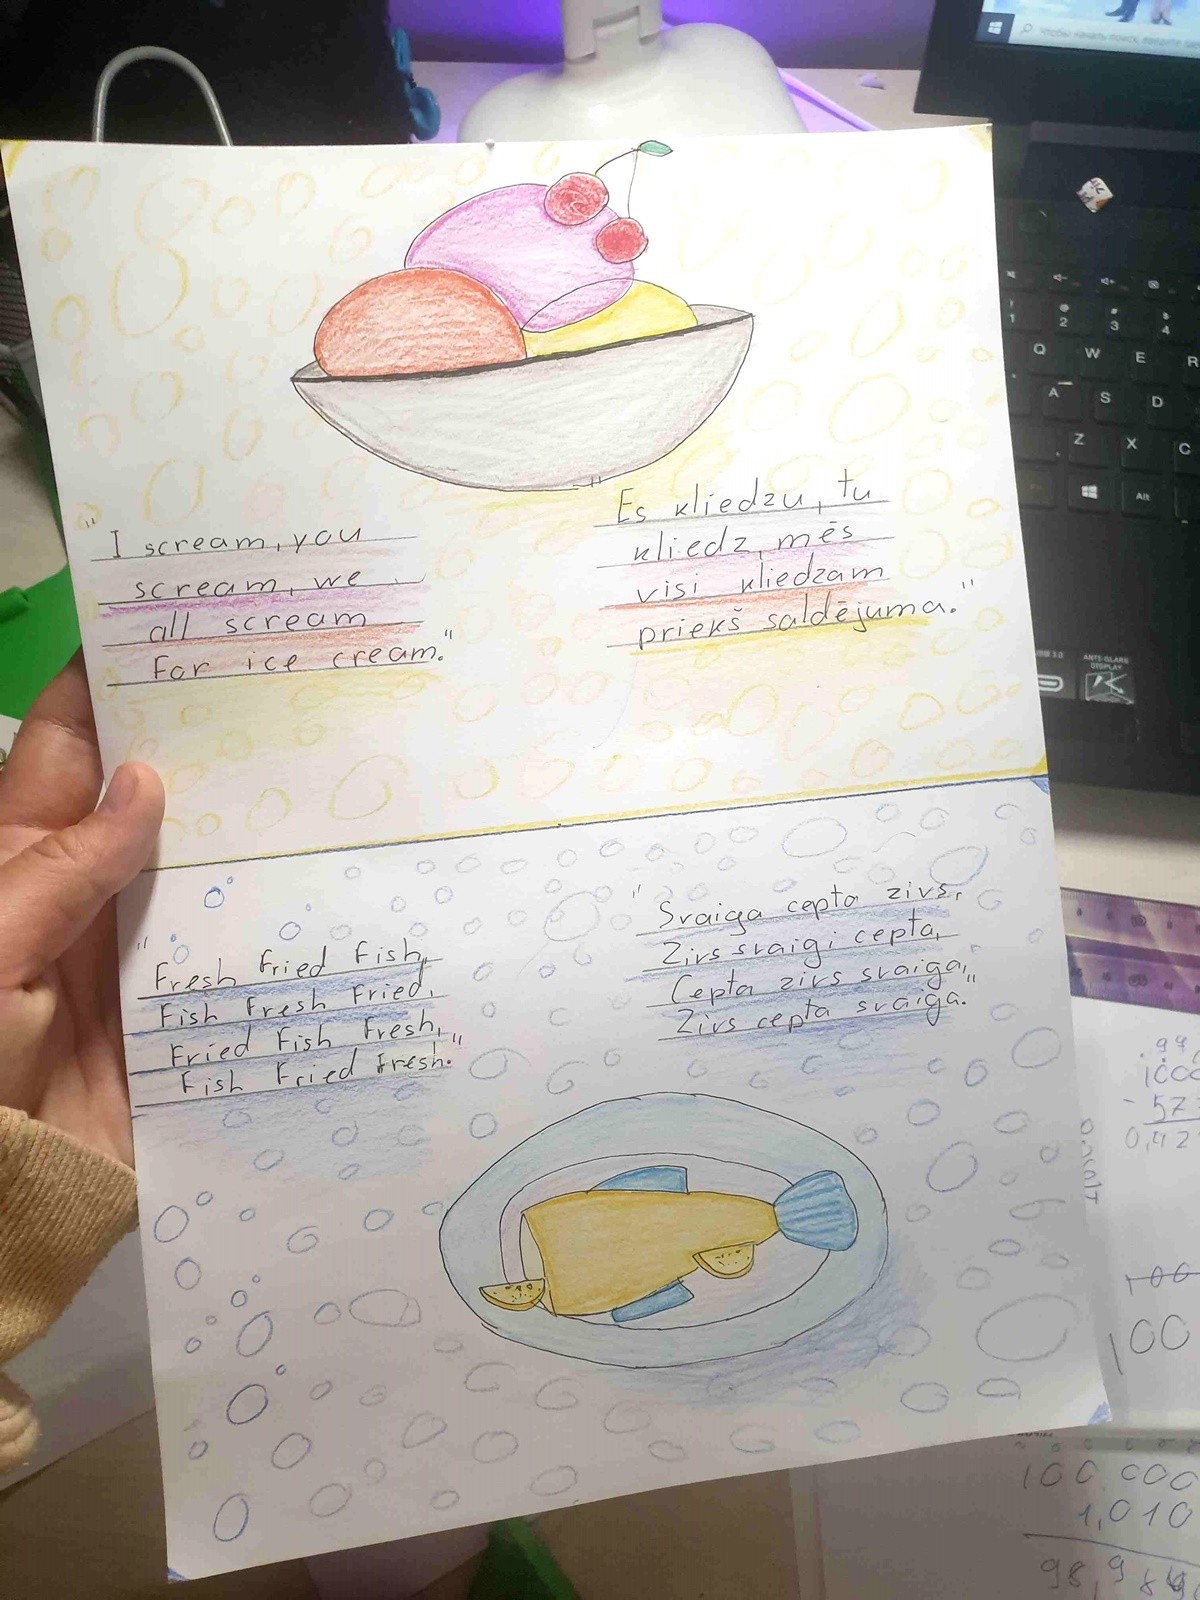 Чтобы начать поиск, введите
"I scream, you
scream, we
all scream
for ice cream."
"Es kliedzu, tu
kliedz, mēs
visi kliedzam
priekš saldējuma."
"Fresh Fried fish,
Fish Fresh Fried,
Fried Fish Fresh,
Fish Fried Fresh."
"Svaiga cepta zivs,
Zivs svaigi cepta,
Cepta zivs svaiga,
Zivs cepta svaiga."
1 2 3 4
Q W E R
A S D
Z X C
Alt
ANTI-GLARE
DISPLAY
100 000
1,010